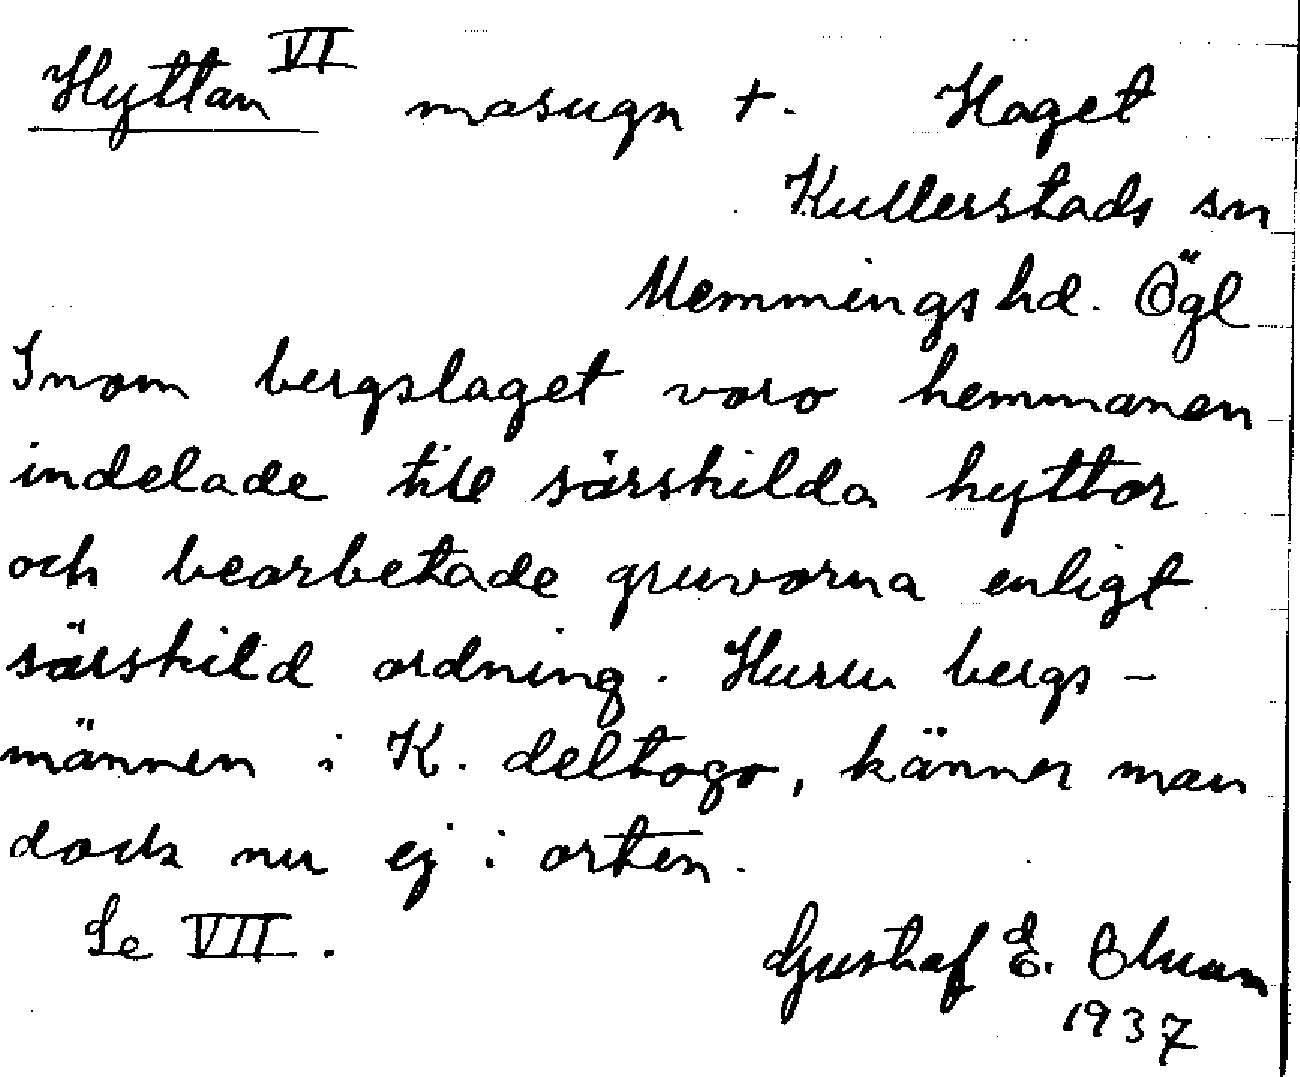 Hyttan VI masugn +. Haget
Kullerstads sn
Memmings hd. Ögl
Inom bergslaget voro hemmanen
indelade till särskilda hyttor
och bearbetade gruvorna enligt
särskild ordning. Huru bergs-
männen i K. deltogo, känner man
dock nu ej i orten.
Se VII.
Gustaf E.
1937